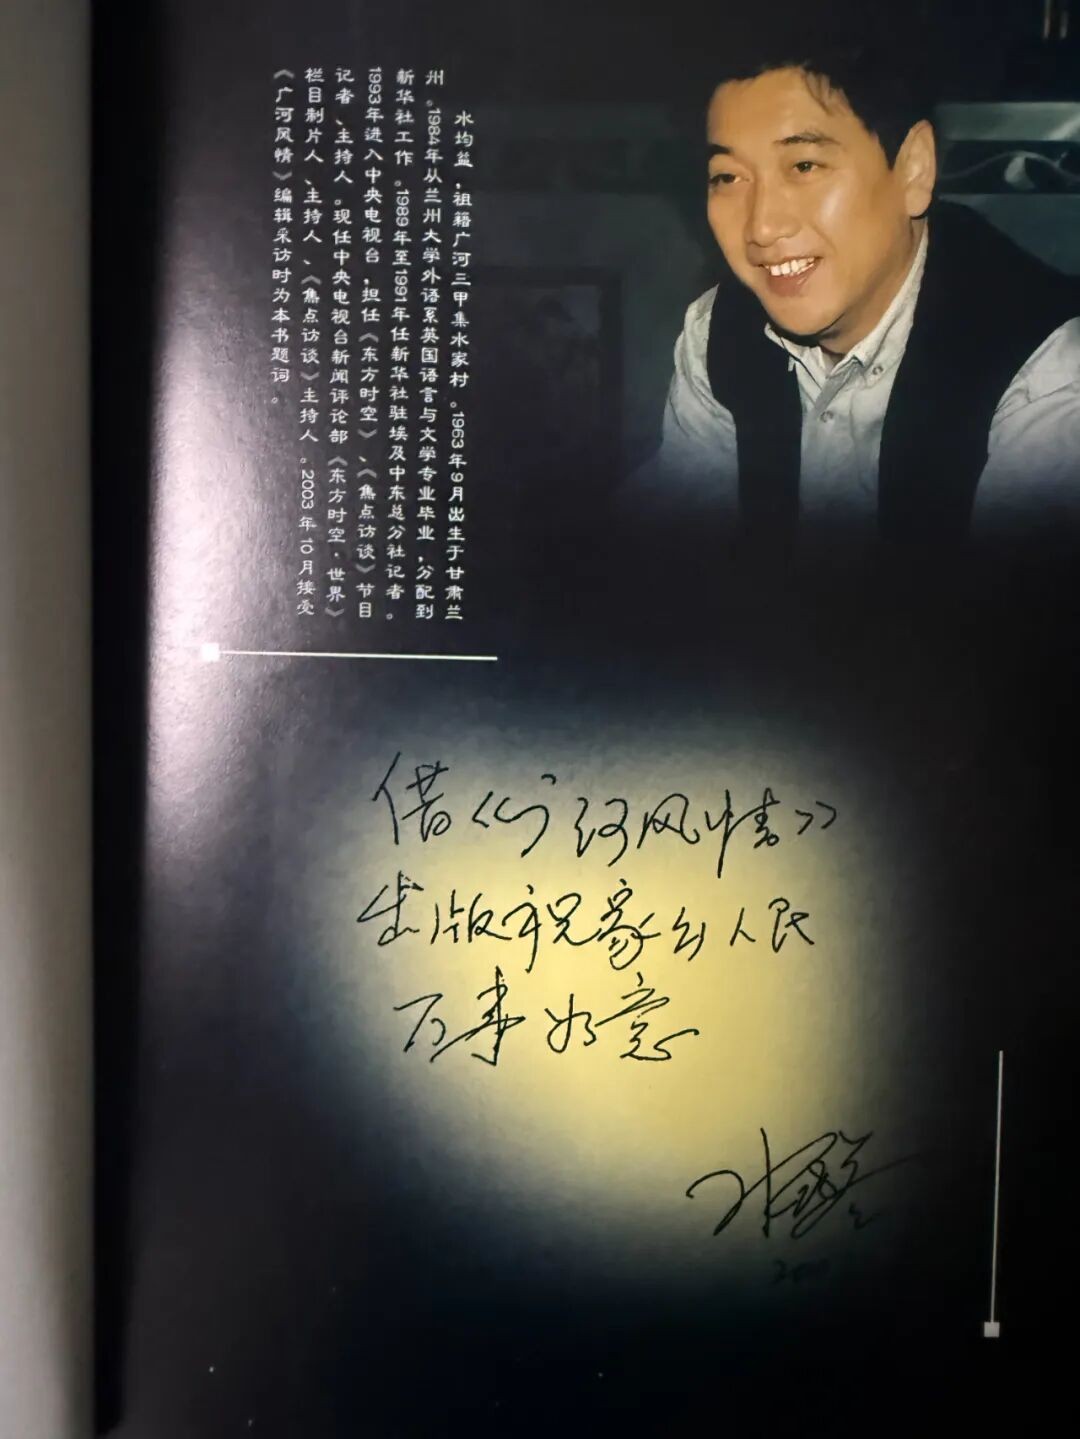 水均益，祖籍广河三甲集水家村。1963年9月出生于甘肃兰
州。1984年从兰州大学外语系英国语言与文学专业毕业，分配到
新华社工作。1989年至1991年任新华社驻埃及中东总分社记者。
1993年进入中央电视台，担任《东方时空》、《焦点访谈》节目
记者、主持人。现任中央电视台新闻评论部《东方时空·世界》
栏目制片人、主持人、《焦点访谈》主持人。2003年10月接受
《广河风情》编辑采访时为本书题词。
借《广河风情》
出版祝家乡人民
万事如意
水均益